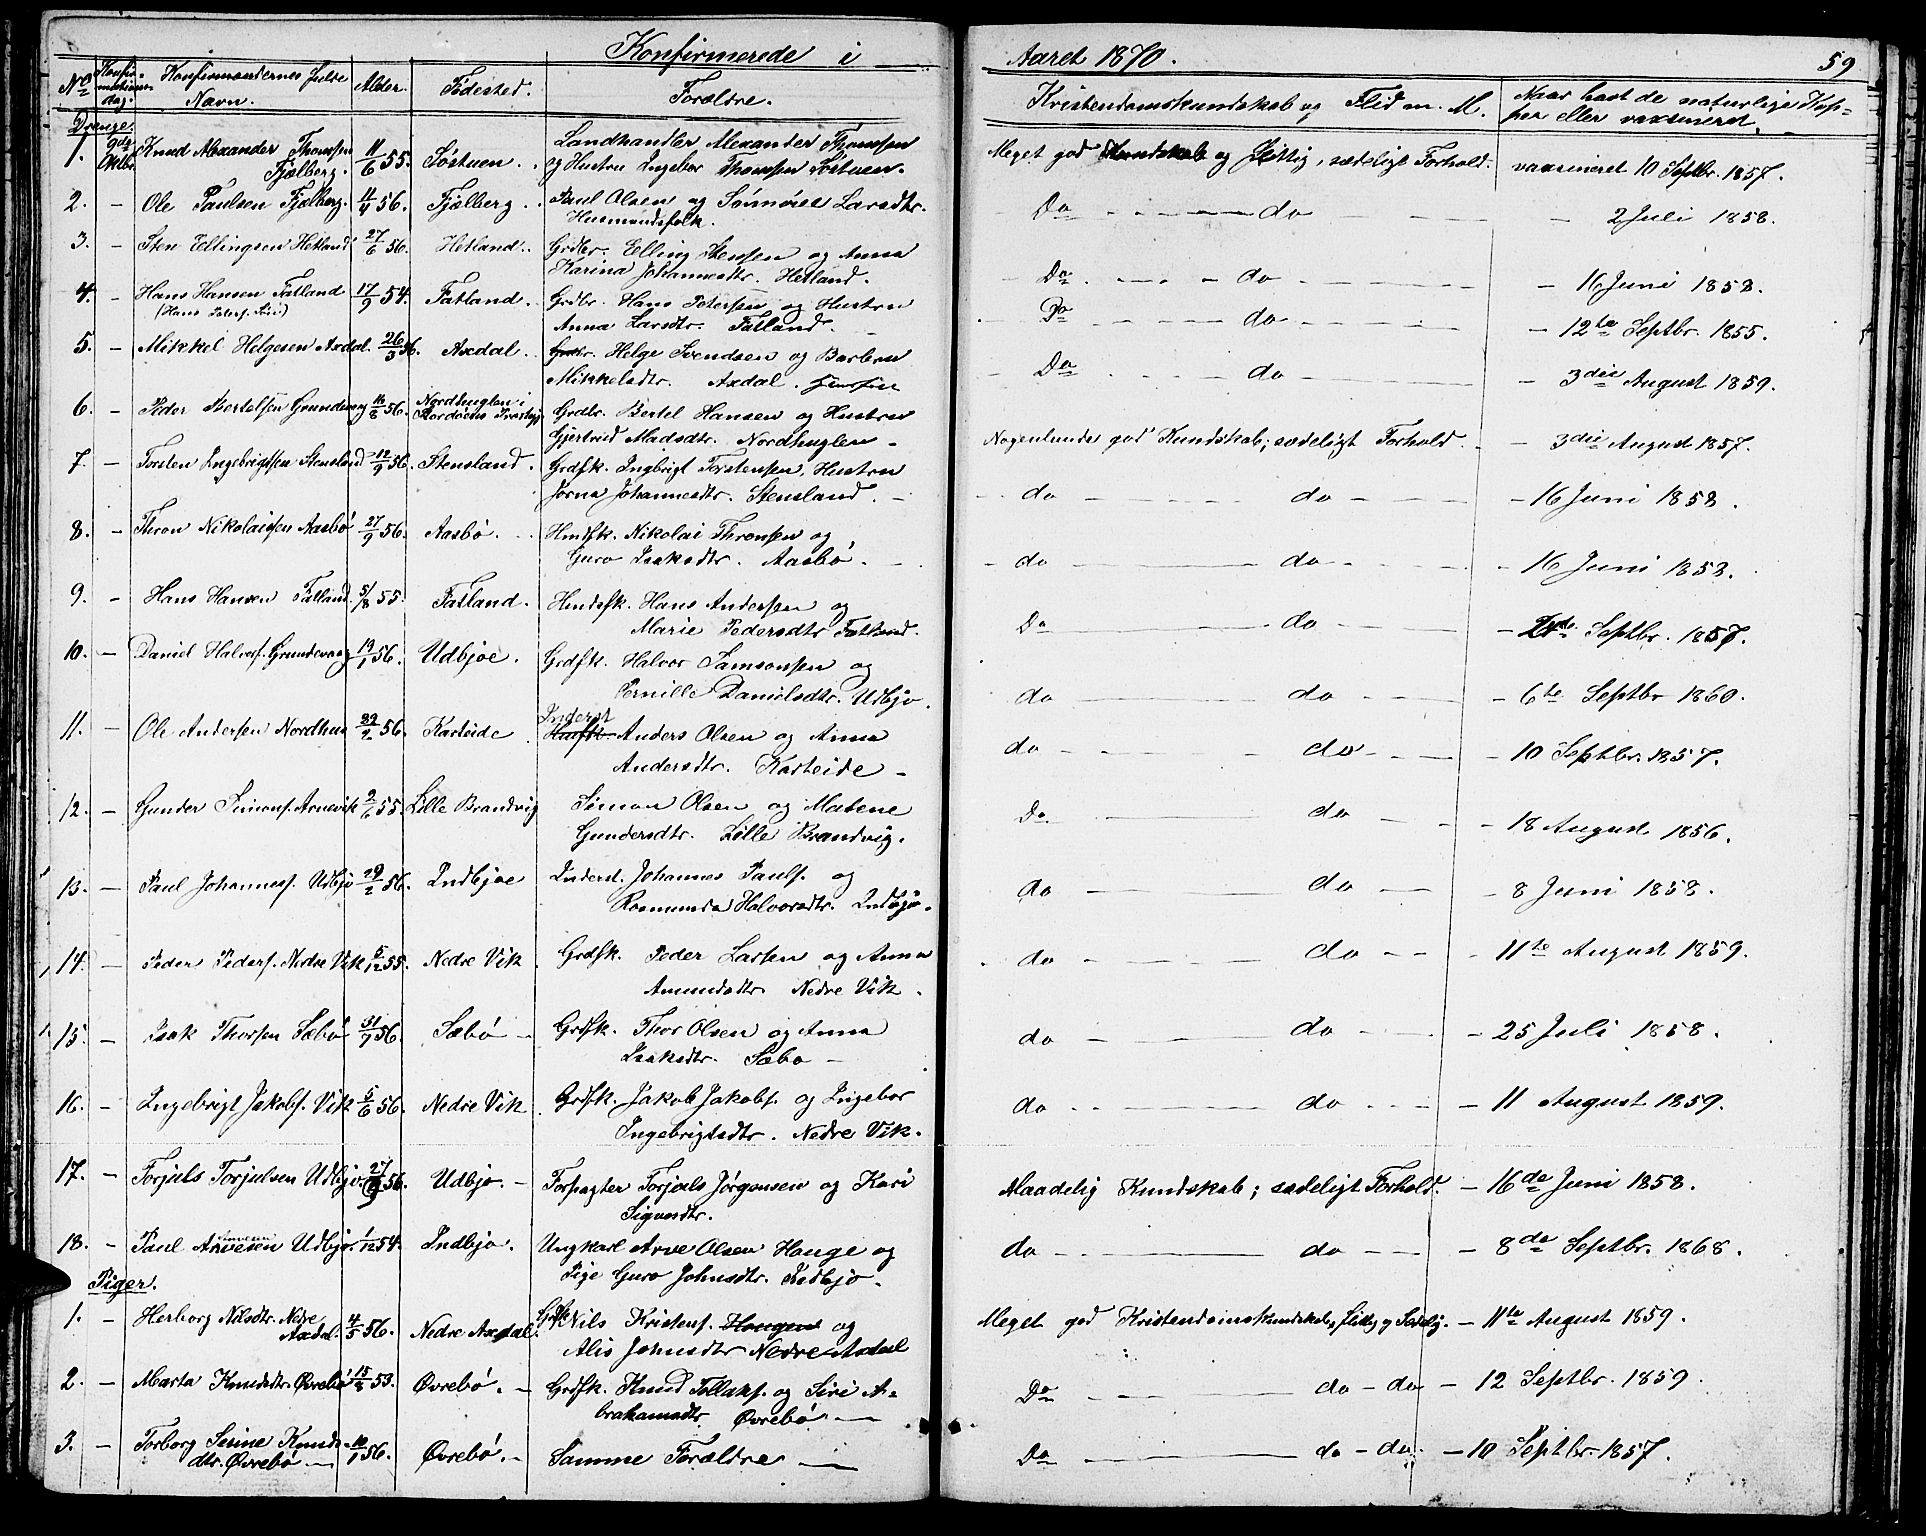 Konfirmerede i Aaret 1870. 59
No Konfirmationsdag. Konfirmandernes fulde Navn. Alder. Fødested. Forældre. Kristendomskundskab og Flid m. M. Naar havt de naturlige Kopper eller vaxsineret.
Drenge.
1. 9de Oktbr. Knud Alexander Thomsen Fjelberg. 11/6 55. Søstuen. Landhandler Alexander Thomsen
og Hustru Ingebor Thomsen Søstuen. Meget god Kundskab og flittig, sædeligt Forhold. vaxsineret 10 Septbr. 1857.
2. — Ole Paulsen Fjelberg. 11/4 56. Fjelberg. Paul Olsen og Sønnøve Larsdtr.
Husmandsfolk. Do — do — 2 Juli 1858.
3. — Sten Ellingsen Hetland 27/6 56. Hetland. Grdbr. Elling Stensen og Anna
Karina Johannesdtr. Hetland. Do — do — 16 Juni 1858.
4. — Hans Hansen Fatland 17/9 54. Fatland. Grdbr. Hans Petersen og Hustru
Anna Larsdtr. Fatland. Do — do — 12te Septbr. 1855.
5. — Mikkel Helgesen Axdal. 26/3 56. Axdal. Grdbr. Helge Svendsen og Barbru
Mikkelsdtr. Axdal. Do — do — 3die August 1859.
6. — Peder Bertelsen Grundevag 16/8 56. Nordhuglen i
Stordøens Præstegj. Grdbr. Bertel Hansen og Hustru
Gjertrud Madsdtr. Nordhuglen — Nogenlunde god Kundskab; sædeligt Forhold. — 3die August 1857.
7. — Torsten Ingebrigtsen Stensland 12/9 56. Stensland. Grdfk. Ingbrigt Torstensen, Hustru
Jorna Johannesdtr. Stensland. — do — do — 16 Juni 1858.
8. — Thron Nikolaisen Aasbø 27/9 56. Aasbø. Hmdfk. Nikolai Thronsen og
Guro Isaksdtr. Aasbø. — do — do — 16 Juni 1858.
9. — Hans Hansen Fatland. 5/8 55. Fatland. Hmdsfk. Hans Andersen og
Marie Pedersdtr Fatland. Do — do — Septbr. 1857.
10. — Daniel Halvors. Grundevaag 19/1 56. Udbjoe. Grdfk. Halvor Samsonsen og
Pernille Danielsdtr. Udbjo. do — do — 6te Septbr 1860.
11. — Ole Andersen Nordhus /2 56. Karteide Inderst
Anders Olsen og Anna
Andersdtr. Karteide — do — do — 10 Septbr. 1857.
12. — Gunder Simons. Arnevik 2/6 55. Lille Brandvig Simon Olsen og Matene
Gundersdtr. Lille Brandvig. Do — do — 18 August 1856.
13. — Paul Johannesf. Udbjo 29/2 56. Indbjoe Inderst. Johannes Paulf. og
Rasmunda Halvorsdtr. Indbjo. do — do — 8 Juni 1858.
14. — Peder Pedersf. Nedre Vik 5/12 55. Nedre Vik Grdfk. Peder Larsen og Anna
Amundsdtr. Nedre Vik. do — do — 11te August 1859.
15. — Isak Thorsen Sæbø 31/7 56. Sæbø — Grdfk. Thor Olsen og Anna
Isaksdtr. Sæbø — do — do — 25 Juli 1858.
16. — Ingebrigt Jakobf. Vik 5/6 56. Nedre Vik Grdfk. Jakob Jakobf. og Ingebor
Ingebrigtsdtr. Nedre Vik. do — do — 11 August 1859.
17. — Torjuls Torjulsen Udbjo. 27/ 56. Udbjo. — Forpagter Torjuls Jørgensen og Kari
Sigvesdtr. Maadelig Kundskab; sædeligt Forhold. — 16de Juni 1858.
18. — Paul Arvesen Udbjo. 1/12 54. Indbjo. Ungkarl Arve Olsen Hauge og
Pige Guro Johnsdtr. Indbjo. do — do — 8de Septbr. 1868.
Piger.
1. — Herborg Nilsdtr. Nedre
Axdal. 4/5 56. Nedre Axdal. Grdfk Nils Kristens. Haugen og
Alis Johnsdtr Nedre Axdal Meget god Kristendomskundskab, flittig og Sædelig. — 11te August 1859.
2. — Marta Knudsdtr. Øvrebø 15/8 53. Øvrebø. — Grdfk. Knud Tollaks. og Siri A-
brahamsdtr Øvrebø — Do — do — do — 12 Septbr. 1859.
3. — Torborg Serine Knuds-
dtr. Øvrebø — 10/1 56. Øvrebø. — Samme Forældre — Do — do — do. — 10 Septbr. 1857.